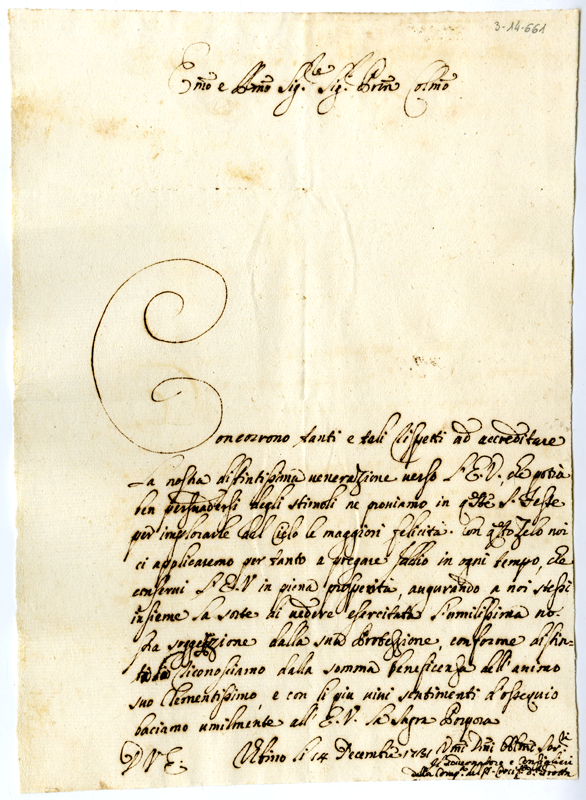 3-14-661
Emo e Rmo Sig.re Sig.r Prin Colmo
Concorrono tanti e tali rispetti ad accreditare
la nostra distintissima venerazione verso l'E.V. che potrà
ben persuadersi degli stimoli ne proviamo in qste S. Feste
per implorarle dal Cielo le maggiori felicità. Con qsto zelo noi
ci applicaremo per tanto a pregare Iddio in ogni tempo, che
conservi l'E.V. in piena prosperità, augurando a noi stessi
insieme la sorte di vedere esercitata l'umilissima no-
stra soggezzione dalla sua Protezzione, conforme distin-
ta la riconosciamo dalla somma beneficenza dell'animo
suo Clementissimo, e con li più vivi sentimenti d'ossequio
baciamo umilmente all'E.V. la Sagra Porpora
D V E. Urbino li 14 Decembre Umi Dmi Oblmi Ser.ri
Il Governatore e Consiglieri
della Comp. del SS. Croci.